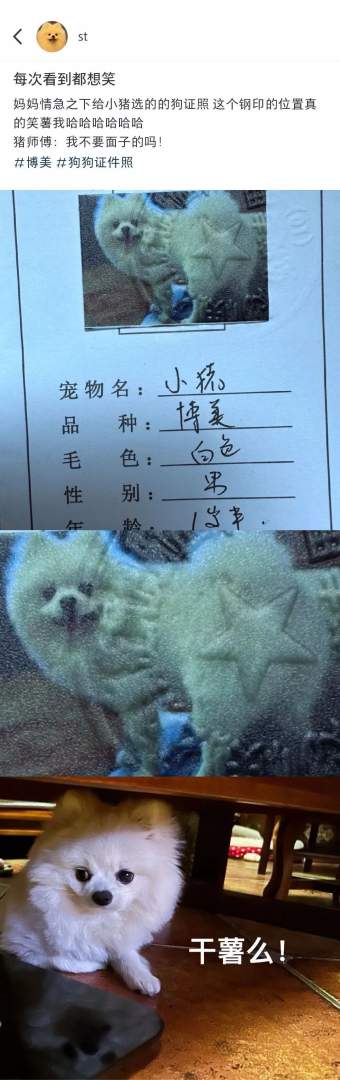 st
每次看到都想笑
妈妈情急之下给小猪选的的狗证照 这个钢印的位置真
的笑薯我哈哈哈哈哈哈
猪师傅：我不要面子的吗！
#博美 #狗狗证件照
宠物名：小猪
品种：博美
毛色：白色
性别：男
年龄：1岁半.
干薯么！